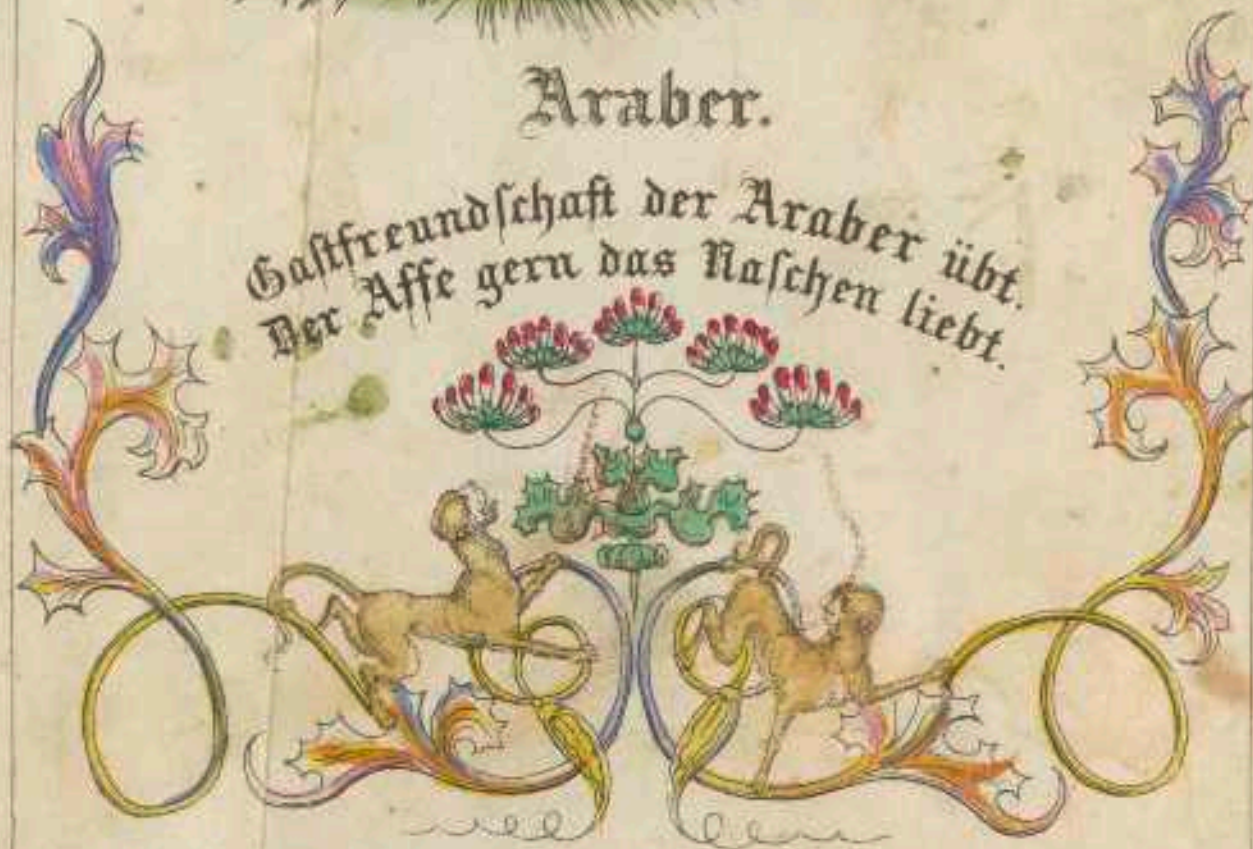 Araber.
Gaſtfreundſchaft der Araber übt.
Der Affe gern das Naſchen liebt.